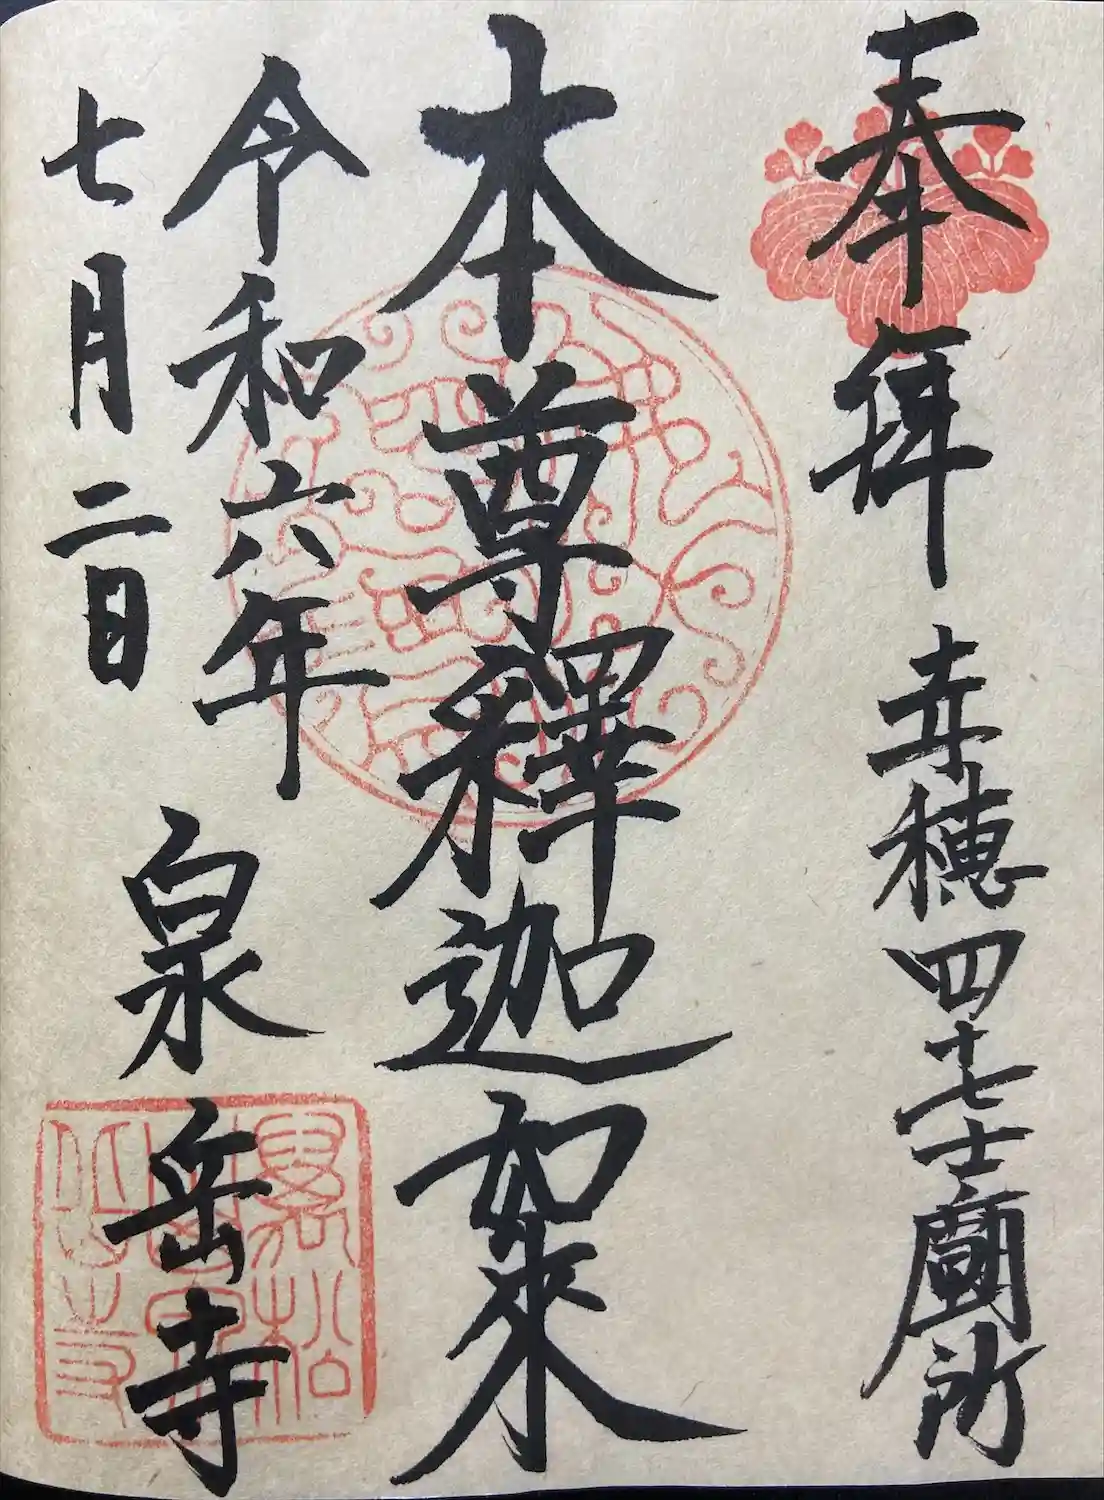 奉拝 赤穂四十七士廟所
本尊釋迦如来
令和六年
七月二日
泉岳寺